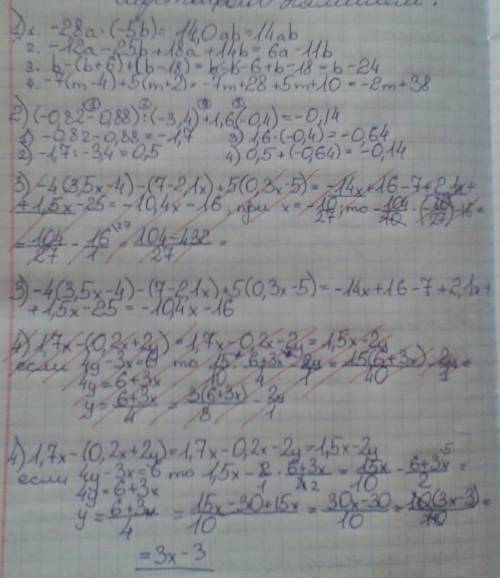 1) 1. -28a·(-5b) = 14,0ab = 14ab
2. -12a-25b+18a+14b = 6a-11b
3. b-(b+6)+(b-18) = b-b-6+b-18 = b-24
4. -7(m-4)+5(m+2) = -7m+28+5m+10 = -2m+38
2) (-0,82-0,88):(-3,4)+1,6·(-0,4) = -0,14
1) -0,82-0,88 = -1,7 3) 1,6·(-0,4) = -0,64
2) -1,7:-3,4 = 0,5 4) 0,5+(-0,64) = -0,14
3) -4(3,5x-4)-(7-2,1x)+5(0,3x-5) = -14x+16-7+2,1x+
+1,5x-25 = -10,4x-16, при x = -10/27; то -104/10·(-10/27)-16 =
= 104/27 - 16/1 = 104-432/27 =
3) -4(3,5x-4)-(7-2,1x)+5(0,3x-5) = -14x+16-7+2,1x+
+1,5x-25 = -10,4x-16
4) 1,7x-(0,2x+2y) = 1,7x-0,2x-2y = 1,5x-2y
если 4y-3x=6 то 15/10·6+3x/4 - 2y/1 = 15(6+3x)/40 - 2y/1 =
4y = 6+3x
y = 6+3x/4 = 3(6+3x)/8 - 2y/1
4) 1,7x-(0,2x+2y) = 1,7x-0,2x-2y = 1,5x-2y
если 4y-3x=6 то 1,5x - 2/1·6+3x/42 = 15x/10 - 6+3x/2 5 =
4y = 6+3x
y = 6+3x/4 = 15x-30+15x/10 = 30x-30/10 = 10(3x-3)/10 =
= 3x-3